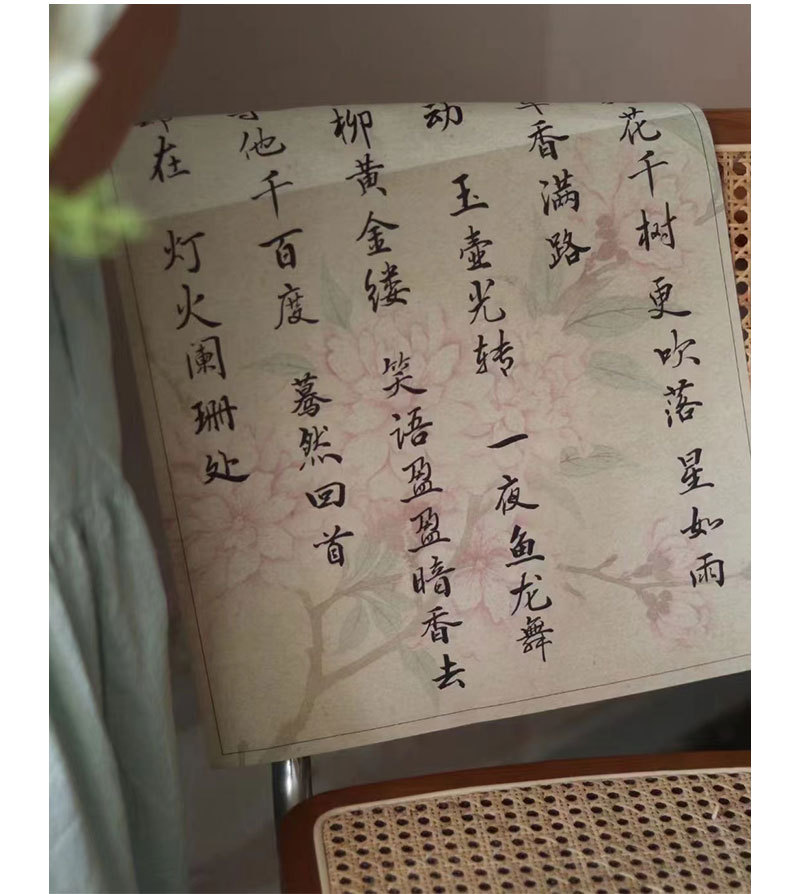 花千树 更吹落 星如雨
香满路
动 玉壶光转 一夜鱼龙舞
柳黄金缕 笑语盈盈暗香去
他千百度 蓦然回首
在 灯火阑珊处